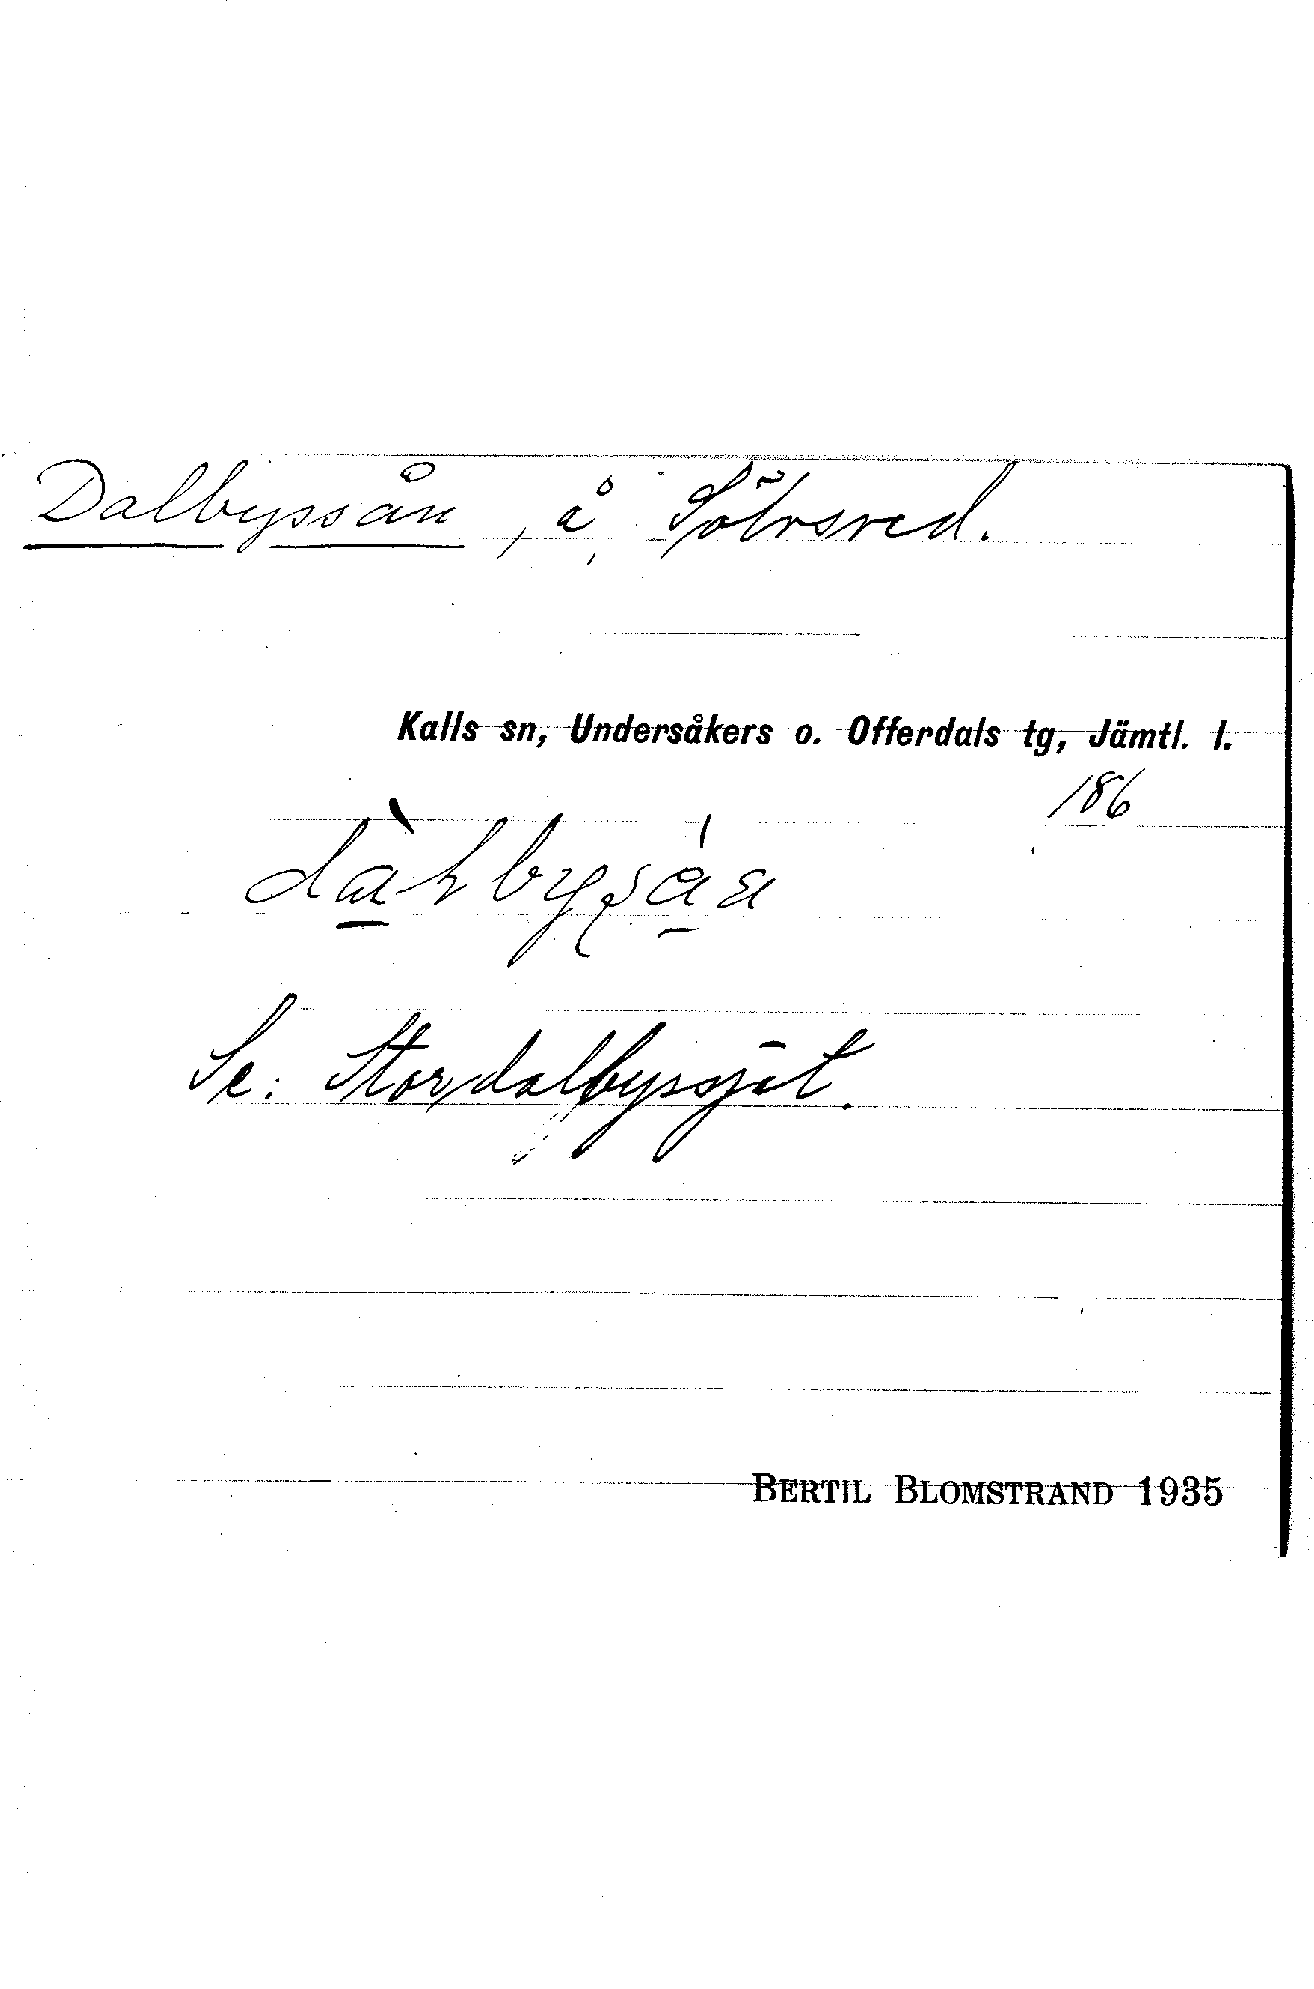 Dalbyssån, å, Sölvsved.
Kalls sn, Undersåkers o. Offerdals tg, Jämtl. l.
186
Se: Stordalbyssjöt.
BERTIL BLOMSTRAND 1935